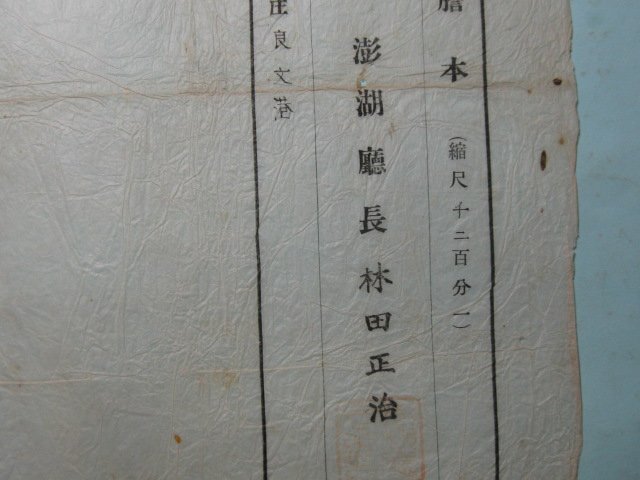 謄本（縮尺千二百分一）
澎湖廳長 林田正治
庄良文港